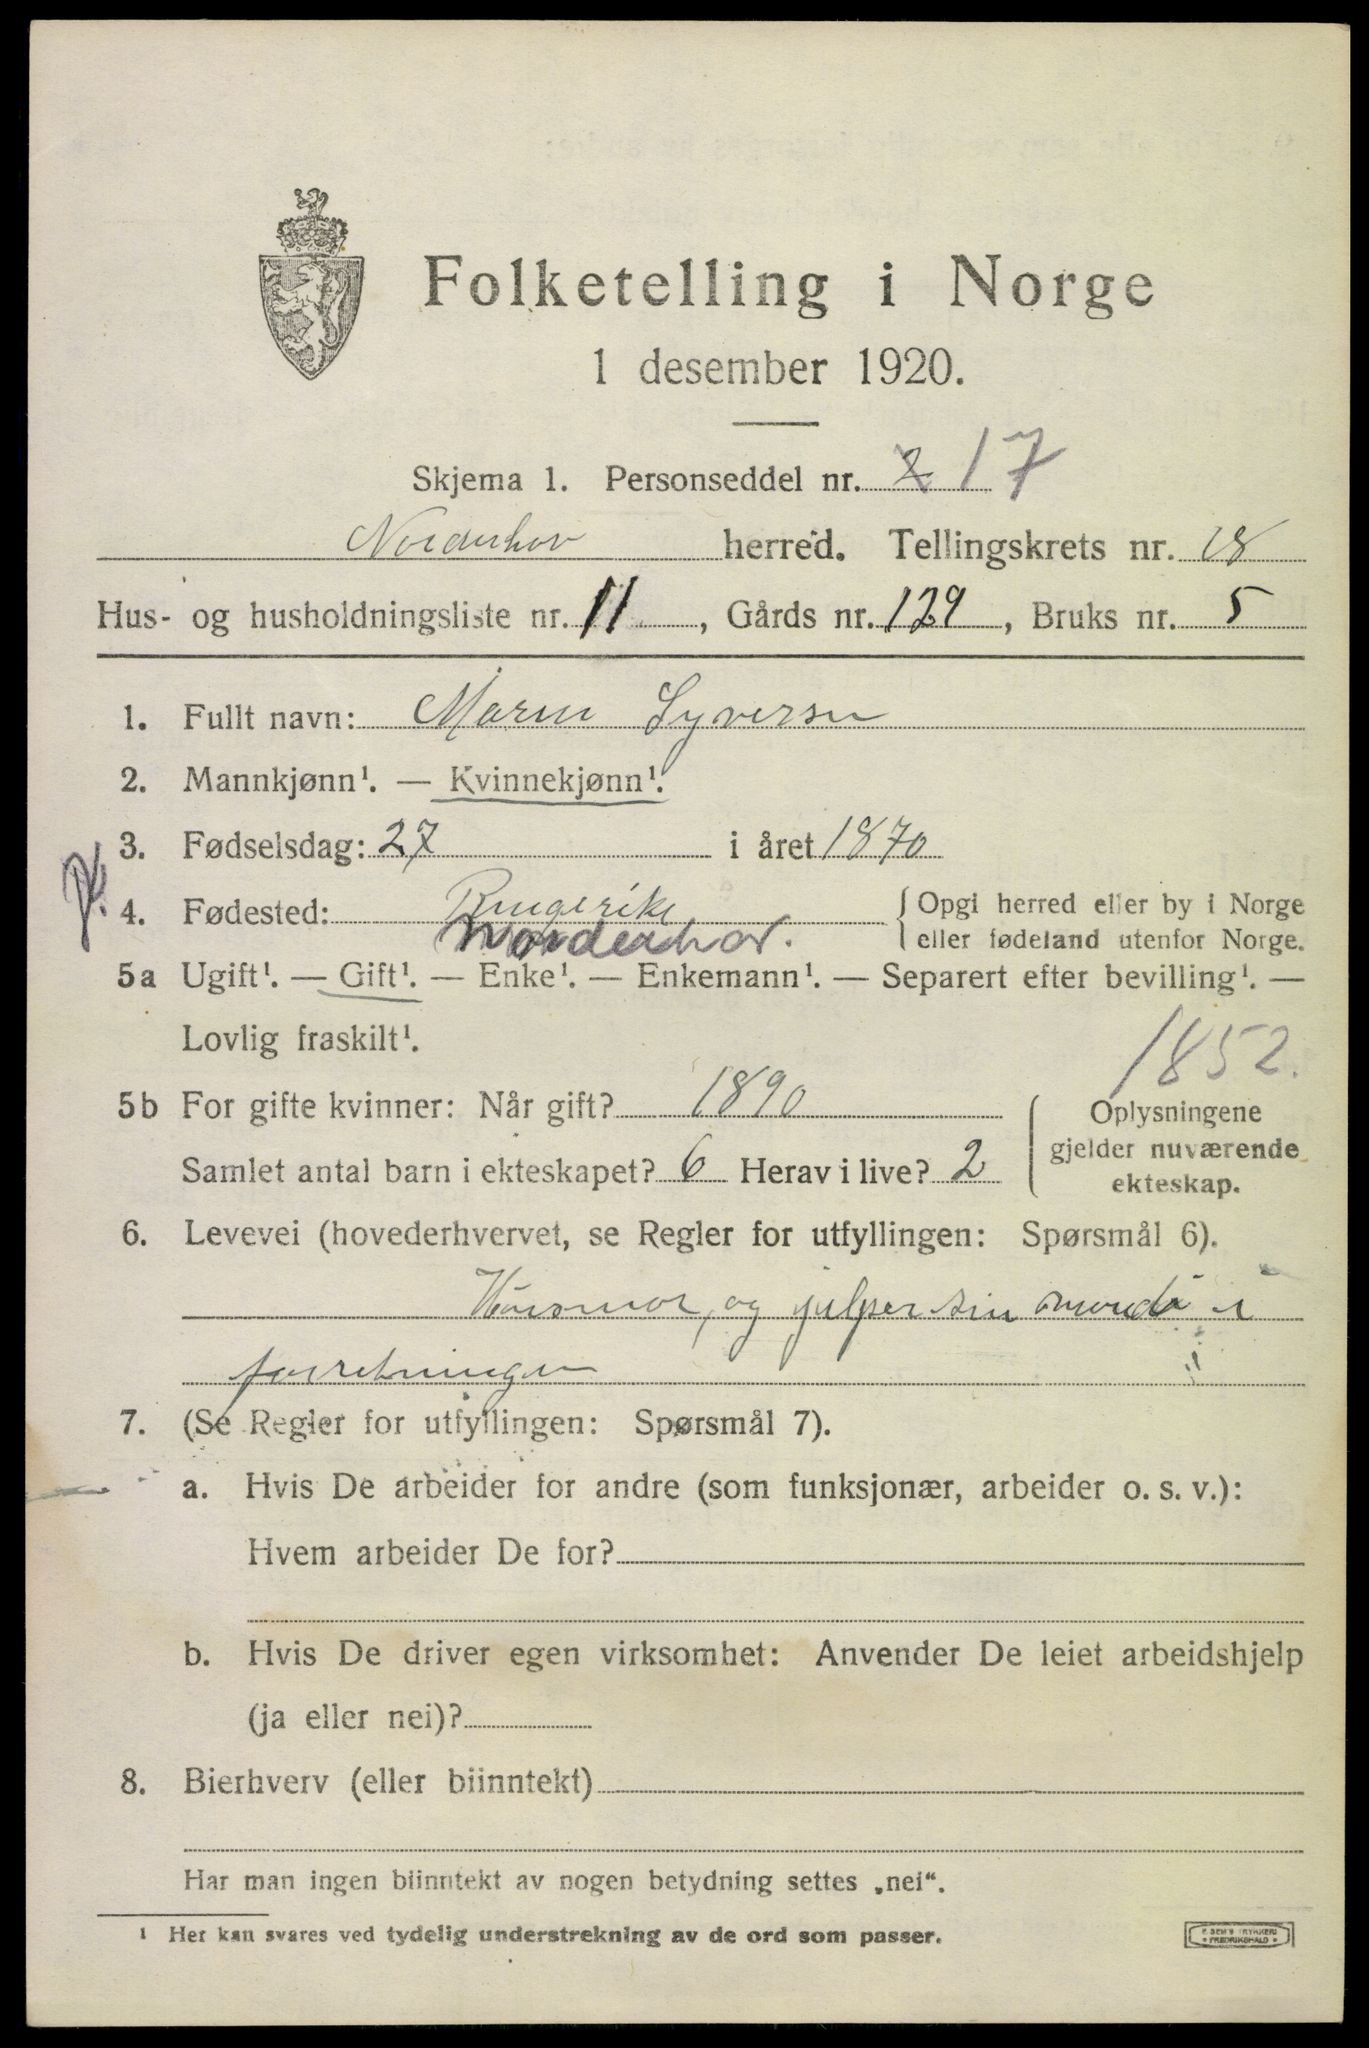 Folketelling i Norge
1 desember 1920.
Skjema 1. Personseddel nr. 2 17
Norderhov herred. Tellingskrets nr. 18
Hus- og husholdningsliste nr. 11, Gårds nr. 129, Bruks nr. 5
1. Fullt navn: Maren Syversen
2. Mannkjønn¹. — Kvinnekjønn¹.
3. Fødselsdag: 27 i året 1870
4. Fødested: Ringerike { Opgi herred eller by i Norge
Norderhov. eller fødeland utenfor Norge.
5a Ugift¹. — Gift¹. — Enke¹. — Enkemann¹. — Separert efter bevilling¹. —
Lovlig fraskilt¹.
1852.
5b For gifte kvinner: Når gift? 1890 { Oplysningene
gjelder nuværende
Samlet antal barn i ekteskapet? 6 Herav i live? 2
ekteskap.
6. Levevei (hovederhvervet, se Regler for utfyllingen: Spørsmål 6).
Husmor, og jelper sin mand i
forretningen
7. (Se Regler for utfyllingen: Spørsmål 7).
a. Hvis De arbeider for andre (som funksjonær, arbeider o. s. v.):
Hvem arbeider De for?
b. Hvis De driver egen virksomhet: Anvender De leiet arbeidshjelp
(ja eller nei)?
8. Bierhverv (eller biinntekt)
Har man ingen biinntekt av nogen betydning settes „nei“.
¹ Her kan svares ved tydelig understrekning av de ord som passer.
FREDRIKSHALD